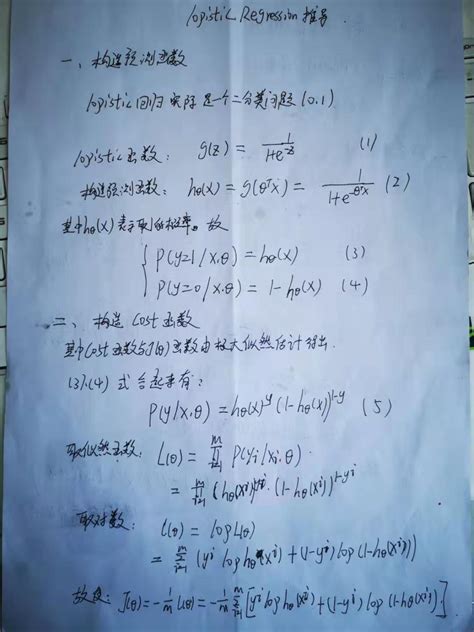 logistic Regression 推导
一、构造预测函数
logistic回归 实际是一个二分类问题(0.1)
logistic函数: g(z) = 1/(1+e^-z) (1)
构造预测函数: hθ(x) = g(θ^T x) = 1/(1+e^-θ^T x) (2)
其中hθ(x)表示取1的概率。故
{ P(y=1/x.θ) = hθ(x) (3)
P(y=0/x.θ) = 1-hθ(x) (4)
二、构造Cost函数
其中Cost函数与J(θ)函数由极大似然估计得出.
(3)、(4) 式合起来有:
P(y/x.θ) = hθ(x)^y (1-hθ(x))^1-y (5)
取似然函数: L(θ) = ∏_{i=1}^m P(yi/xi.θ)
= ∏_{i=1}^m (hθ(x^i))^y^i · (1-hθ(x^i))^1-y^i
取对数: l(θ) = log L(θ)
= ∑_{i=1}^m (y^i log hθ(x^i) + (1-y^i) log (1-hθ(x^i)))
J(θ) = -1/m l(θ) = -1/m ∑_{i=1}^m [y^i log hθ(x^i) + (1-y^i) log (1-hθ(x^i))]